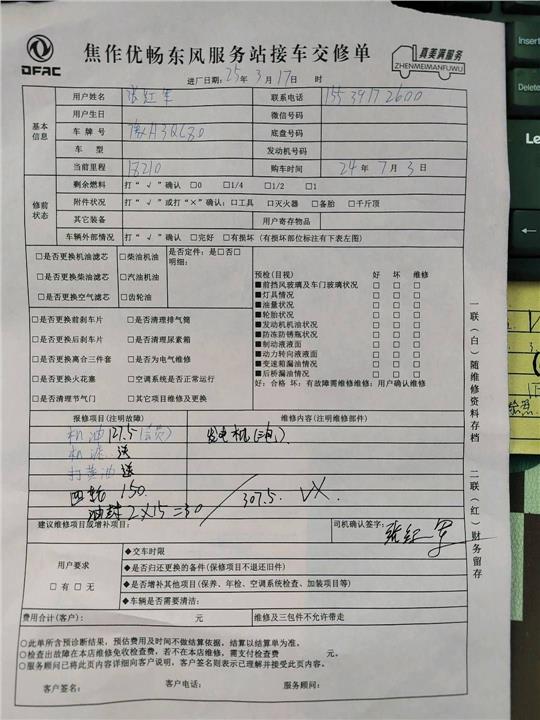 DFAC
焦作优畅东风服务站接车交修单
真美满服务
ZHENMEIMANFUWU
进厂日期：25年 3月 17日 时
基本信息
用户姓名 张红军 联系电话 15539172600
用户生日 微信号码
车牌号 豫H3QC80 底盘号
车型 发动机号码
当前里程 18210 购车时间 24年 7月 3日
修前状态
剩余燃料 打“√”确认 □0 □1/4 □1/2 □1
附件状况 打“√”或打“×”确认：□工具 □灭火器 □备胎 □千斤顶
其它装备 用户寄存物品
车辆外部情况 打“√”确认 □完好 □有损坏（有损坏部位标注有下表左图）
□是否更换机油滤芯 □柴油机油
□是否更换柴油滤芯 □汽油机油
□是否更换空气滤芯 □齿轮油
是否定件：是□否□
明细：
□是否更换前刹车片 □是否清理排气筒
□是否更换后刹车片 □是否清理尿素箱
□是否更换离合三件套 □是否为电气维修
□是否更换火花塞 □空调系统是否正常运行
□是否清理节气门 □其它项目维修及更换
预检（目视） 好 坏 维修
■前挡风玻璃及车门玻璃状况 □ □ □
■灯具情况 □ □ □
■油量状况 □ □ □
■轮胎状况 □ □ □
■发动机机油状况 □ □ □
■防冻防锈瓶状况 □ □ □
■制动液液面 □ □ □
■动力转向液液面 □ □ □
■变速箱漏油情况 □ □ □
■后桥漏油情况 □ □ □
好：合格 坏：有故障需维修维修：用户确认维修
报修项目（注明故障） 维修内容（注明维修部件）
机油 127.5（会员） 发电机（三包）
机滤 送
打黄油 送
四轮 150.
油封 2×15=30 307.5.
建议维修项目或增补项目： 司机确认签字： 张红军
用户要求
□有 □无
◆交车时限
◆是否归还更换的备件（保修项目不退还旧件）
◆是否增补其他项目（保养、年检、空调系统检查、加装项目等）
◆车辆是否需要清洁：
费用合计（客户）： 元 维修及三包件不允许带走
○此单所含预诊断结果，预估费用及时间不做结算依据，结算以结算单为准。
○检查出故障在本店维修免收检查费，若不在本店维修，需支付检查费 元。
○服务顾问已将此页内容详细向客户说明，客户签名则表示已理解并接受此页内容。
客户签名： 客户电话： 服务顾问：
一联（白）随维修资料存档
二联（红）财务留存
Insert
Delete
Le